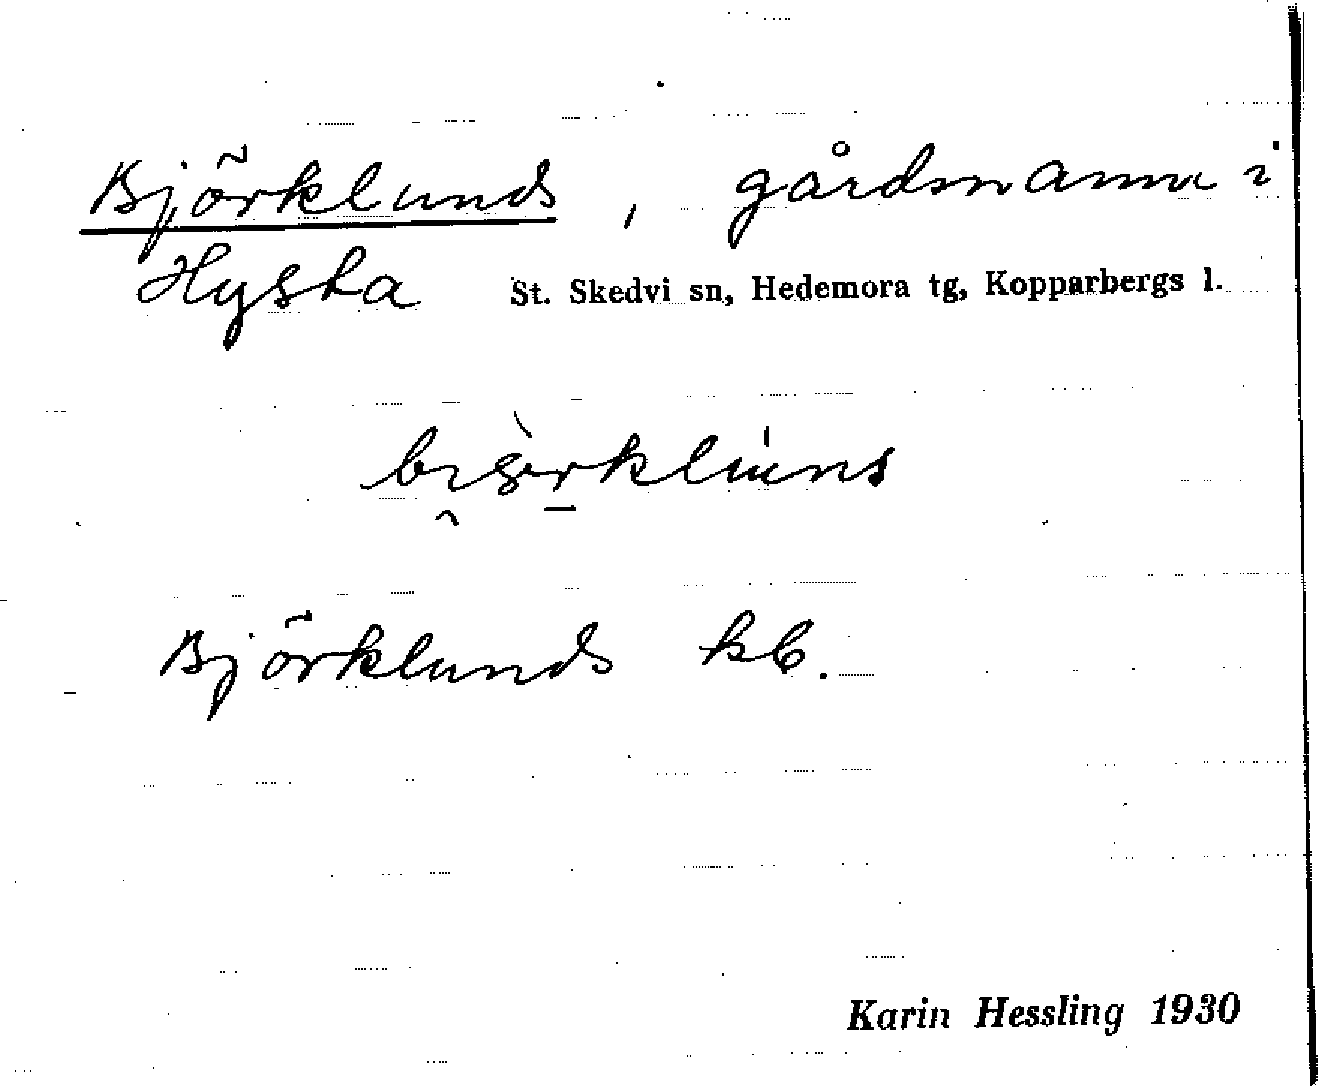 Björklunds, gårdsnamn i
Hyska St. Skedvi sn, Hedemora tg, Kopparbergs l.
Björklunds kb.
Karin Hessling 1930